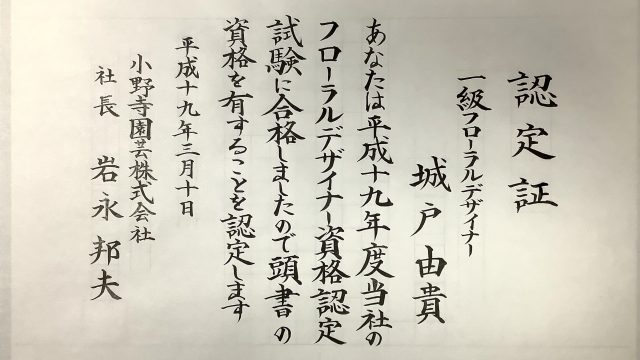 認定証
一級フローラルデザイナー
城戸由貴
あなたは平成十九年度当社の
フローラルデザイナー資格認定
試験に合格しましたので頭書の
資格を有することを認定します
平成十九年三月十日
小野寺園芸株式会社
社長 岩永邦夫